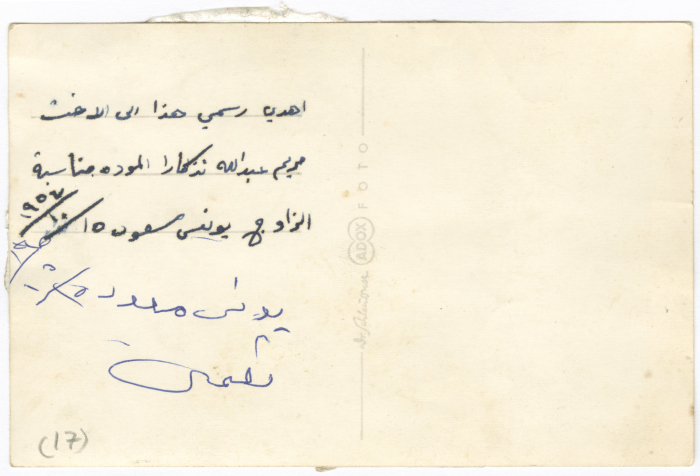 اهدي رسمي هذا الى الاخت
مريم عبدالله تذكارا الموده مناسبة
الزاوج يونس مسعود ١٥/١٠/١٩٥٧
يونس مسعود
ADOX
FOTO
(17)